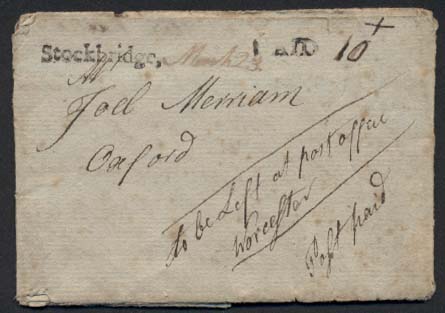 Stockbridge, March 23. PAID 10
Mr
Joel Merriam
Oxford
to be Left at post office
Worcester
Post paid